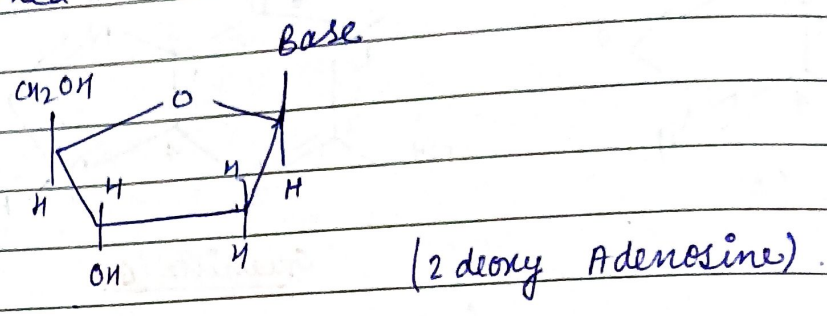 Base
CH2OH
O
H
H
H
H
OH
H
(2 deoxy Adenosine)